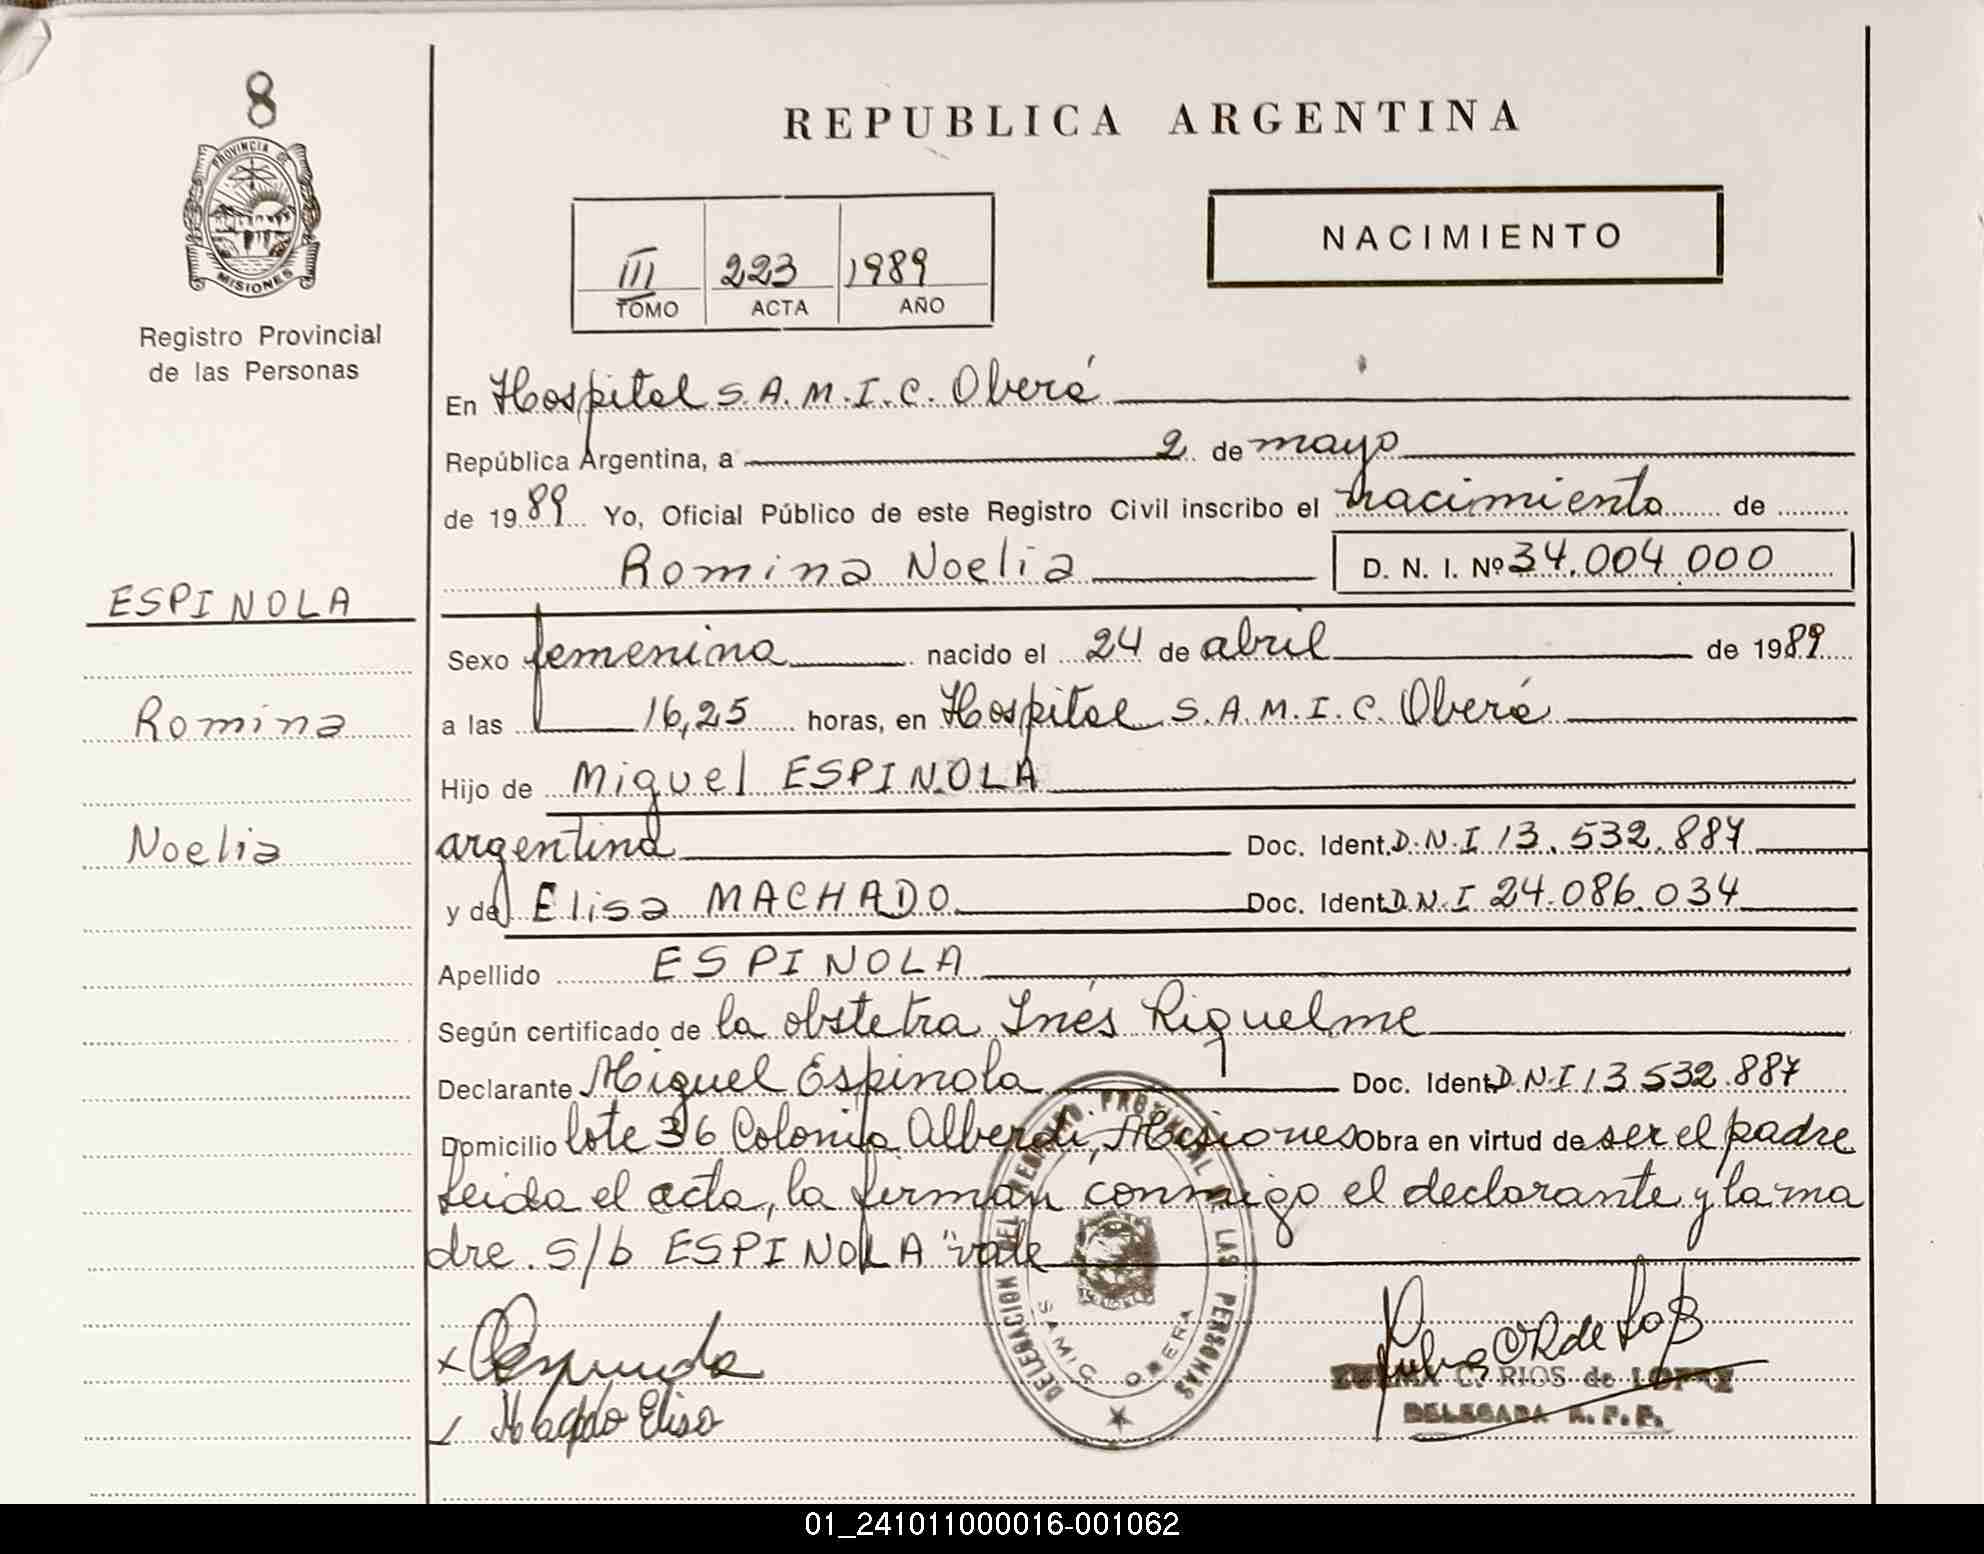 8
PROVINCIA DE
MISIONES
Registro Provincial
de las Personas
ESPINOLA
Romina
Noelia
REPUBLICA ARGENTINA
III 223 1989
TOMO ACTA AÑO
NACIMIENTO
En Hospital S.A.M.I.C. Oberá
República Argentina, a 2 de mayo
de 1989 Yo, Oficial Público de este Registro Civil inscribo el nacimiento de
Romina Noelia D. N. I. Nº 34.004.000
Sexo femenino nacido el 24 de abril de 1989
a las 16,25 horas, en Hospital S.A.M.I.C. Oberá
Hijo de Miguel ESPINOLA
argentino Doc. Ident. D.N.I 13.532.887
y de Elisa MACHADO Doc. Ident. D.N.I 24.086.034
Apellido ESPINOLA
Según certificado de la obstetra Inés Riquelme
Declarante Miguel Espinola Doc. Ident. D.N.I 13.532.887
Domicilio lote 36 Colonia Alberdi, Misiones Obra en virtud de ser el padre
leida el acta, la firman conmigo el declarante y la ma
dre. S/b ESPINOLA "vale
DELEGACION DEL REGISTRO PROVINCIAL DE LAS PERSONAS
SAMIC OBERA
ZULMA C. RIOS de LOPEZ
DELEGADA R. P. P.
01_241011000016-001062